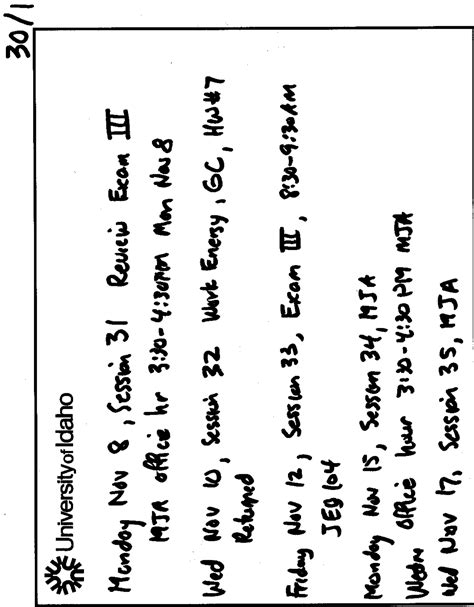 30/1
University of Idaho
Monday Nov 8, Session 31 Review Exam III
MJA office hr 3:30-4:30PM Mon Nov 8
Wed Nov 10, Session 32 Work Energy, GC, HW#7
Returned
Friday Nov 12, Session 33, Exam III, 8:30-9:30AM
JEB 104
Monday Nov 15, Session 34, MJA
office hour 3:30-4:30PM MJA
Wed Nov 17, Session 35, MJA